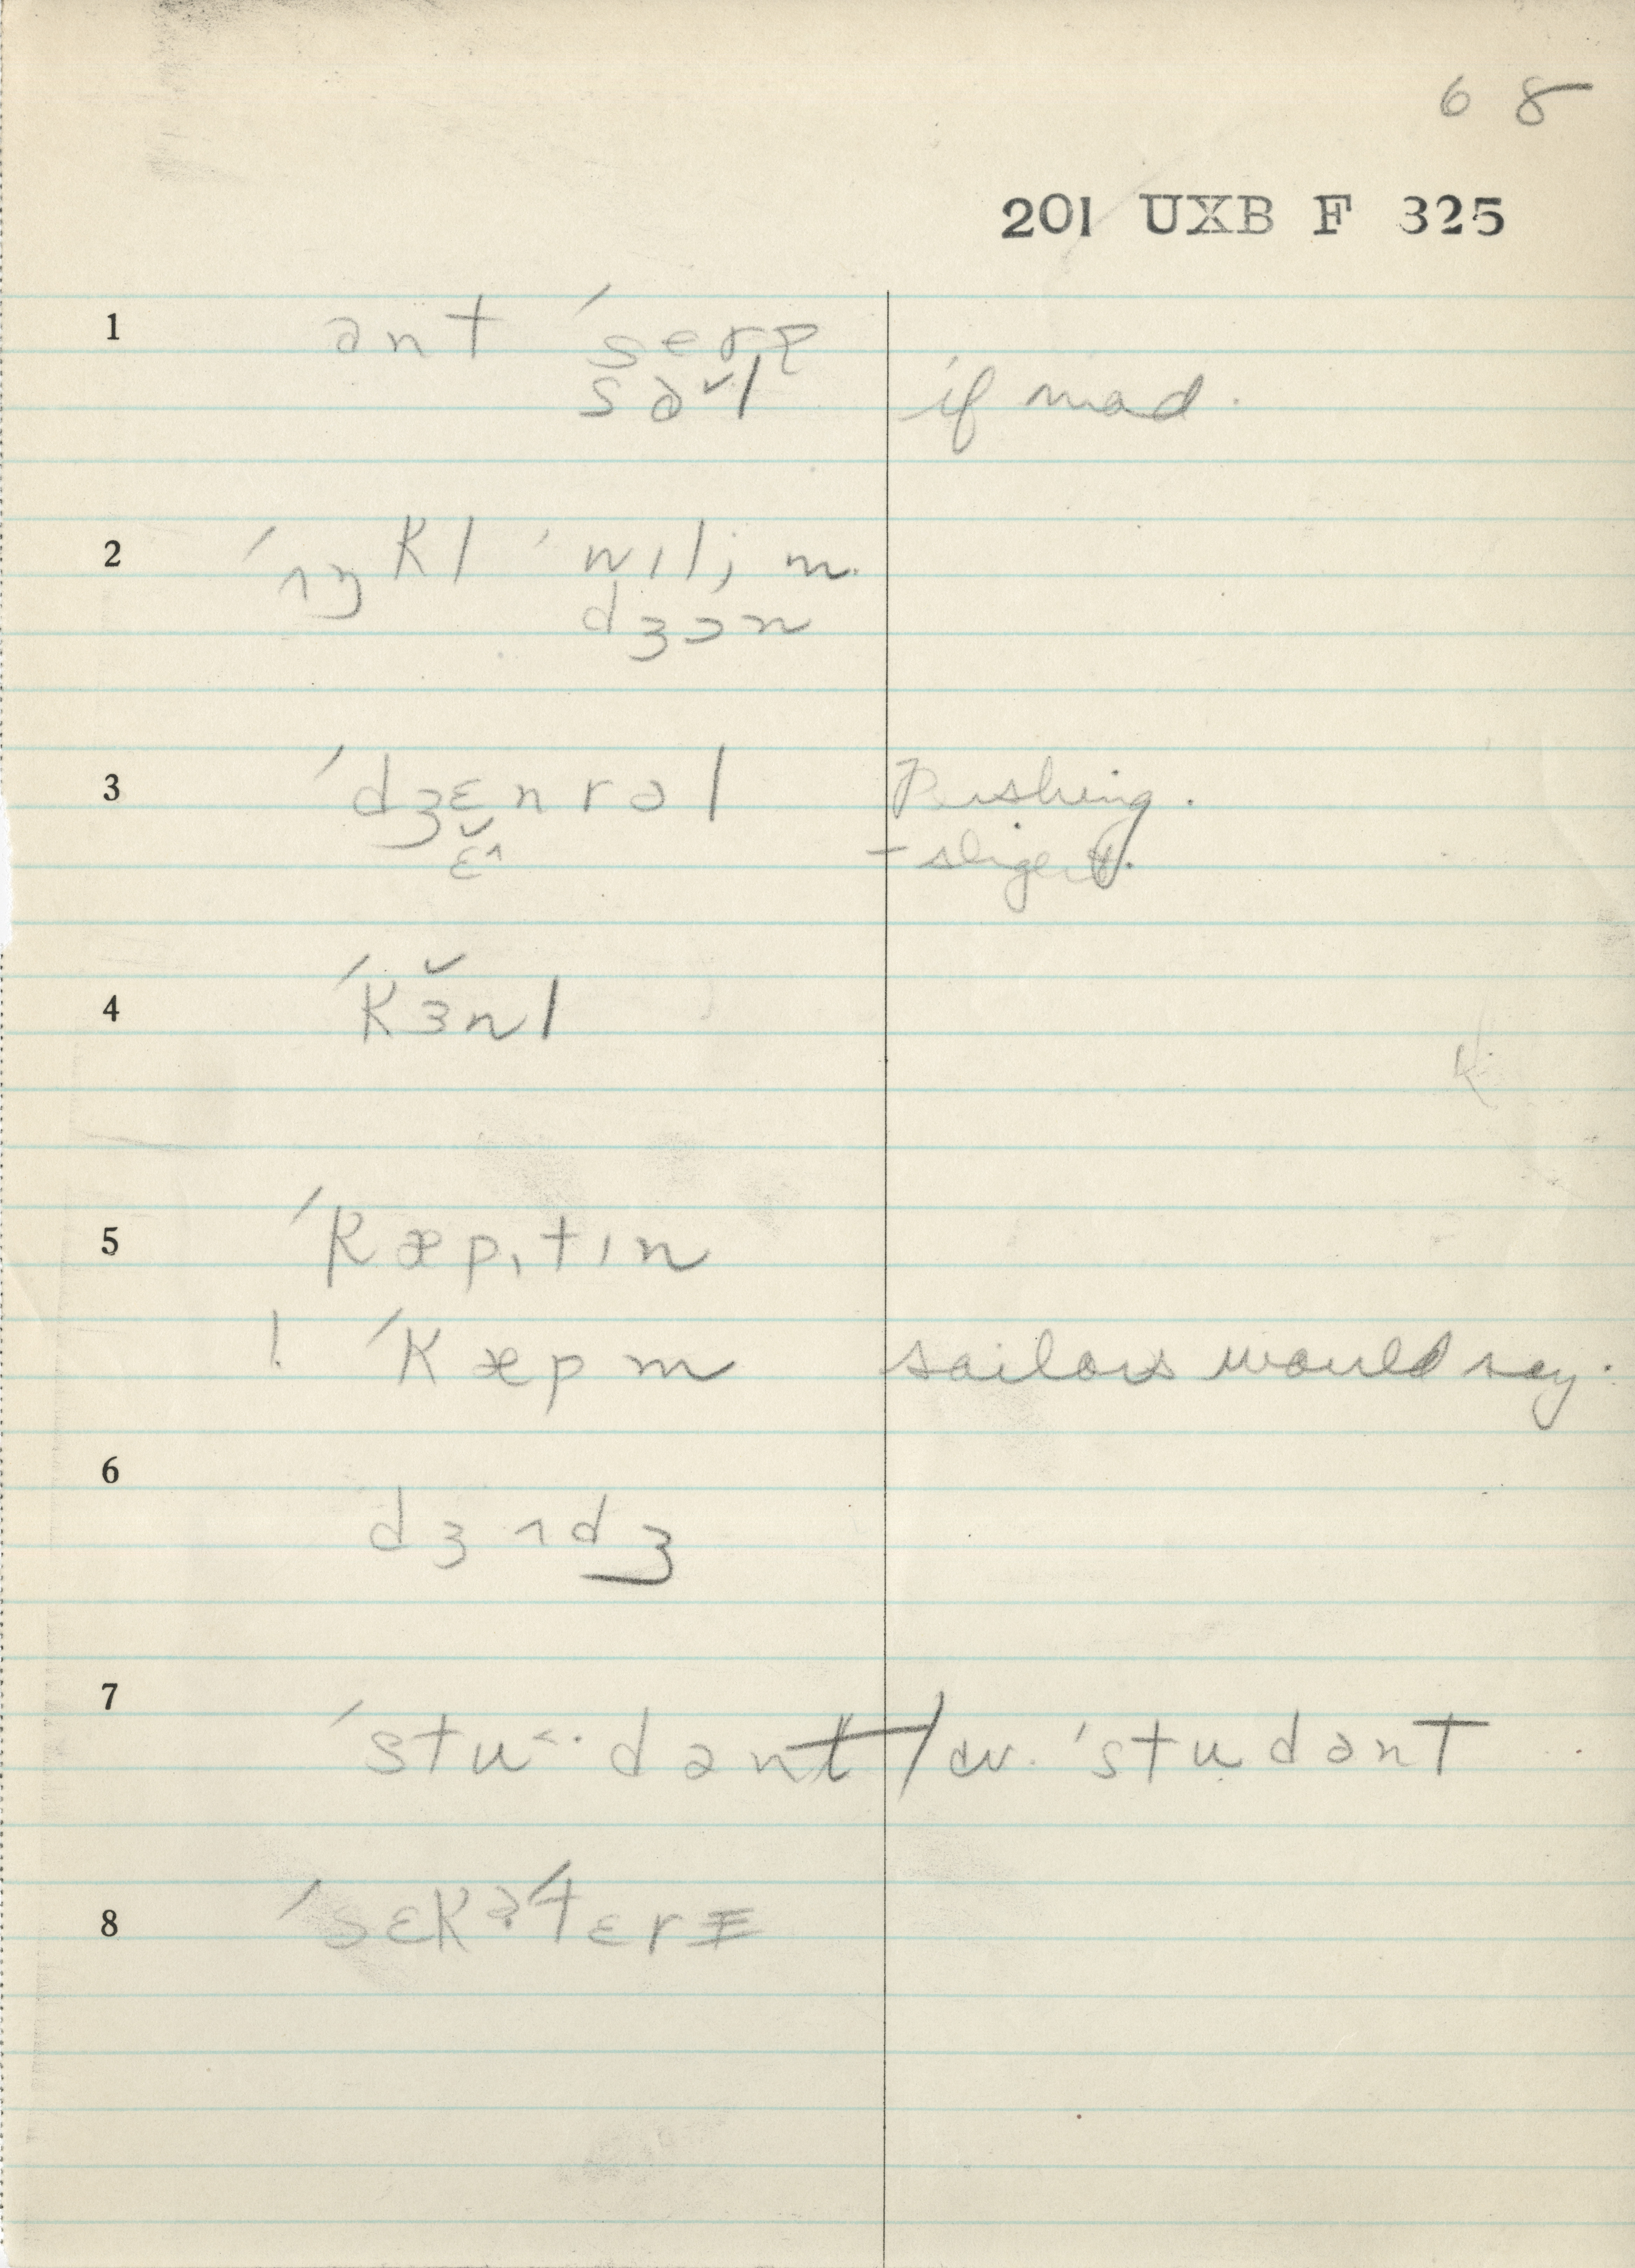 68
201 UXB F 325
1 ant ˈserɪ
sə˅l if mad.
2 ˈʌŋkl ˈwɪljm
dʒɔn
3 ˈdʒɛnrəl Pershing.
ɛ˅^
4 ˈkɜ˅nl
5 ˈkæpɪtɪn
! ˈkæpm sailors would say.
6 dʒʌdʒ
7 ˈstu<·dənt / cv. ˈstudənt
8 ˈsɛkə4ɛrɪ